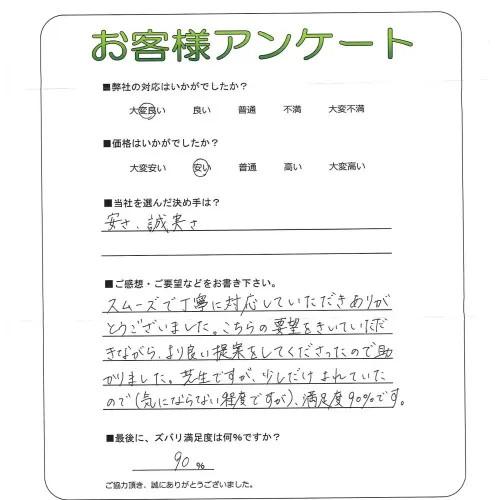 お客様アンケート
■弊社の対応はいかがでしたか?
大変良い 良い 普通 不満 大変不満
■価格はいかがでしたか?
大変安い 安い 普通 高い 大変高い
■当社を選んだ決め手は?
安さ、誠実さ
■ご感想・ご要望などをお書き下さい。
スムーズで丁寧に対応していただきありが
とうございました。こちらの要望をきいていただ
きながら、より良い提案をしてくださったので助
かりました。芝生ですが、少しだけよれていた
ので(気にならない程度ですが)、満足度90%です。
■最後に、ズバリ満足度は何%ですか?
90 %
ご協力頂き、誠にありがとうございました。